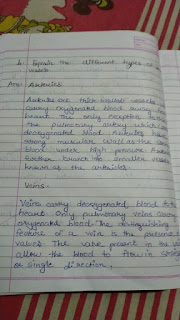 1. Explain the different types of
vessels
Ans: Arteries
Arteries are thick-walled vessels
carry oxygenated blood away
heart. The only exception
the pulmonary artery which
deoxygenated blood. Arteries have
strong muscular walls as the
blood under high pressure. Arteries
further branch into smaller vessels
known as the arterioles.
Veins-
Veins carry deoxygenated blood to
heart. Only pulmonary veins carry
oxygenated blood. The distinguishing
feature of a vein is the presence
valves. The valve present in the
allow the blood to flow in
or single direction.